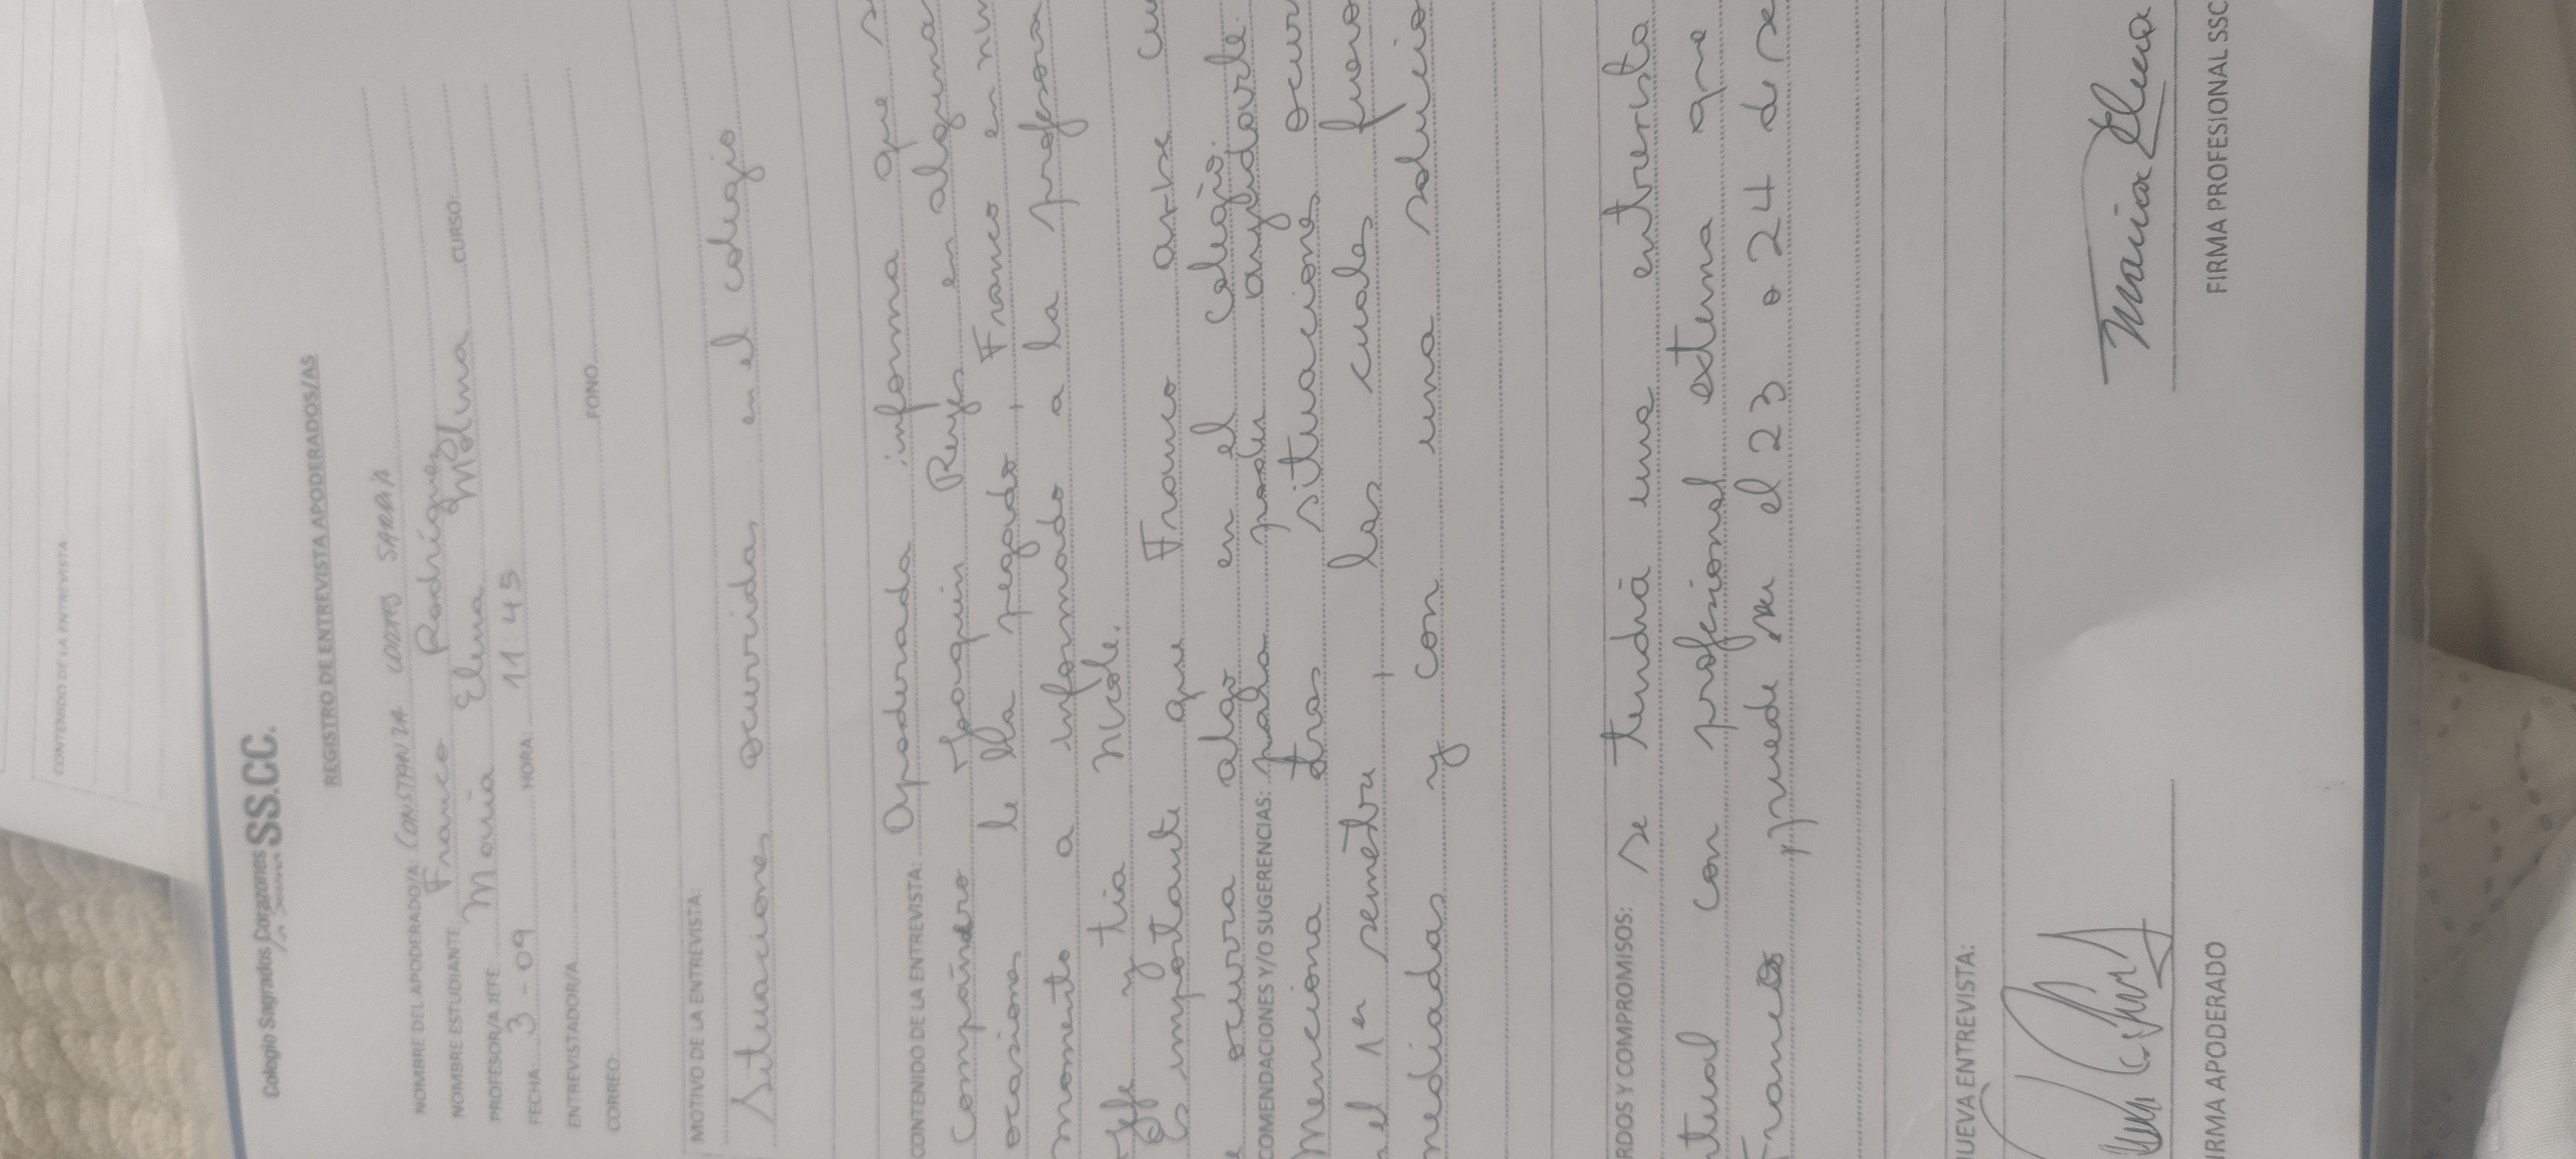 CONTENIDO DE LA ENTREVISTA
Colegio Sagrados Corazones SS.CC.
REGISTRO DE ENTREVISTA APODERADOS/AS
NOMBRE DEL APODERADO/A: CONSTANZA CORTES SARA
NOMBRE ESTUDIANTE Franco Rodríguez
PROFESOR/A JEFE: Maria Elena Molina CURSO:
FECHA: 3-09 HORA: 11:45
ENTREVISTADOR/A
CORREO: FONO
MOTIVO DE LA ENTREVISTA:
Situaciones ocurridas en el colegio
CONTENIDO DE LA ENTREVISTA: Apoderada informa que s
compañero Joaquin Reyes en alguna
ocasiones le ha pegado, Franco en nin
momento a informado a la profesora
Jefe y tia Nicole.
Es importante que Franco avise cu
e ocurra algo en el colegio.
COMENDACIONES Y/O SUGERENCIAS: para poder ayudarle.
Menciona otras situaciones ocur
el 1er semestre, las cuales fuero
mediadas y con una solucio
RDOS Y COMPROMISOS: se tendrá una entrevista
tual con profesional externa que
Franco puede ser el 23 o 24 de se
UEVA ENTREVISTA:
Maria Elena
IRMA APODERADO FIRMA PROFESIONAL SSC